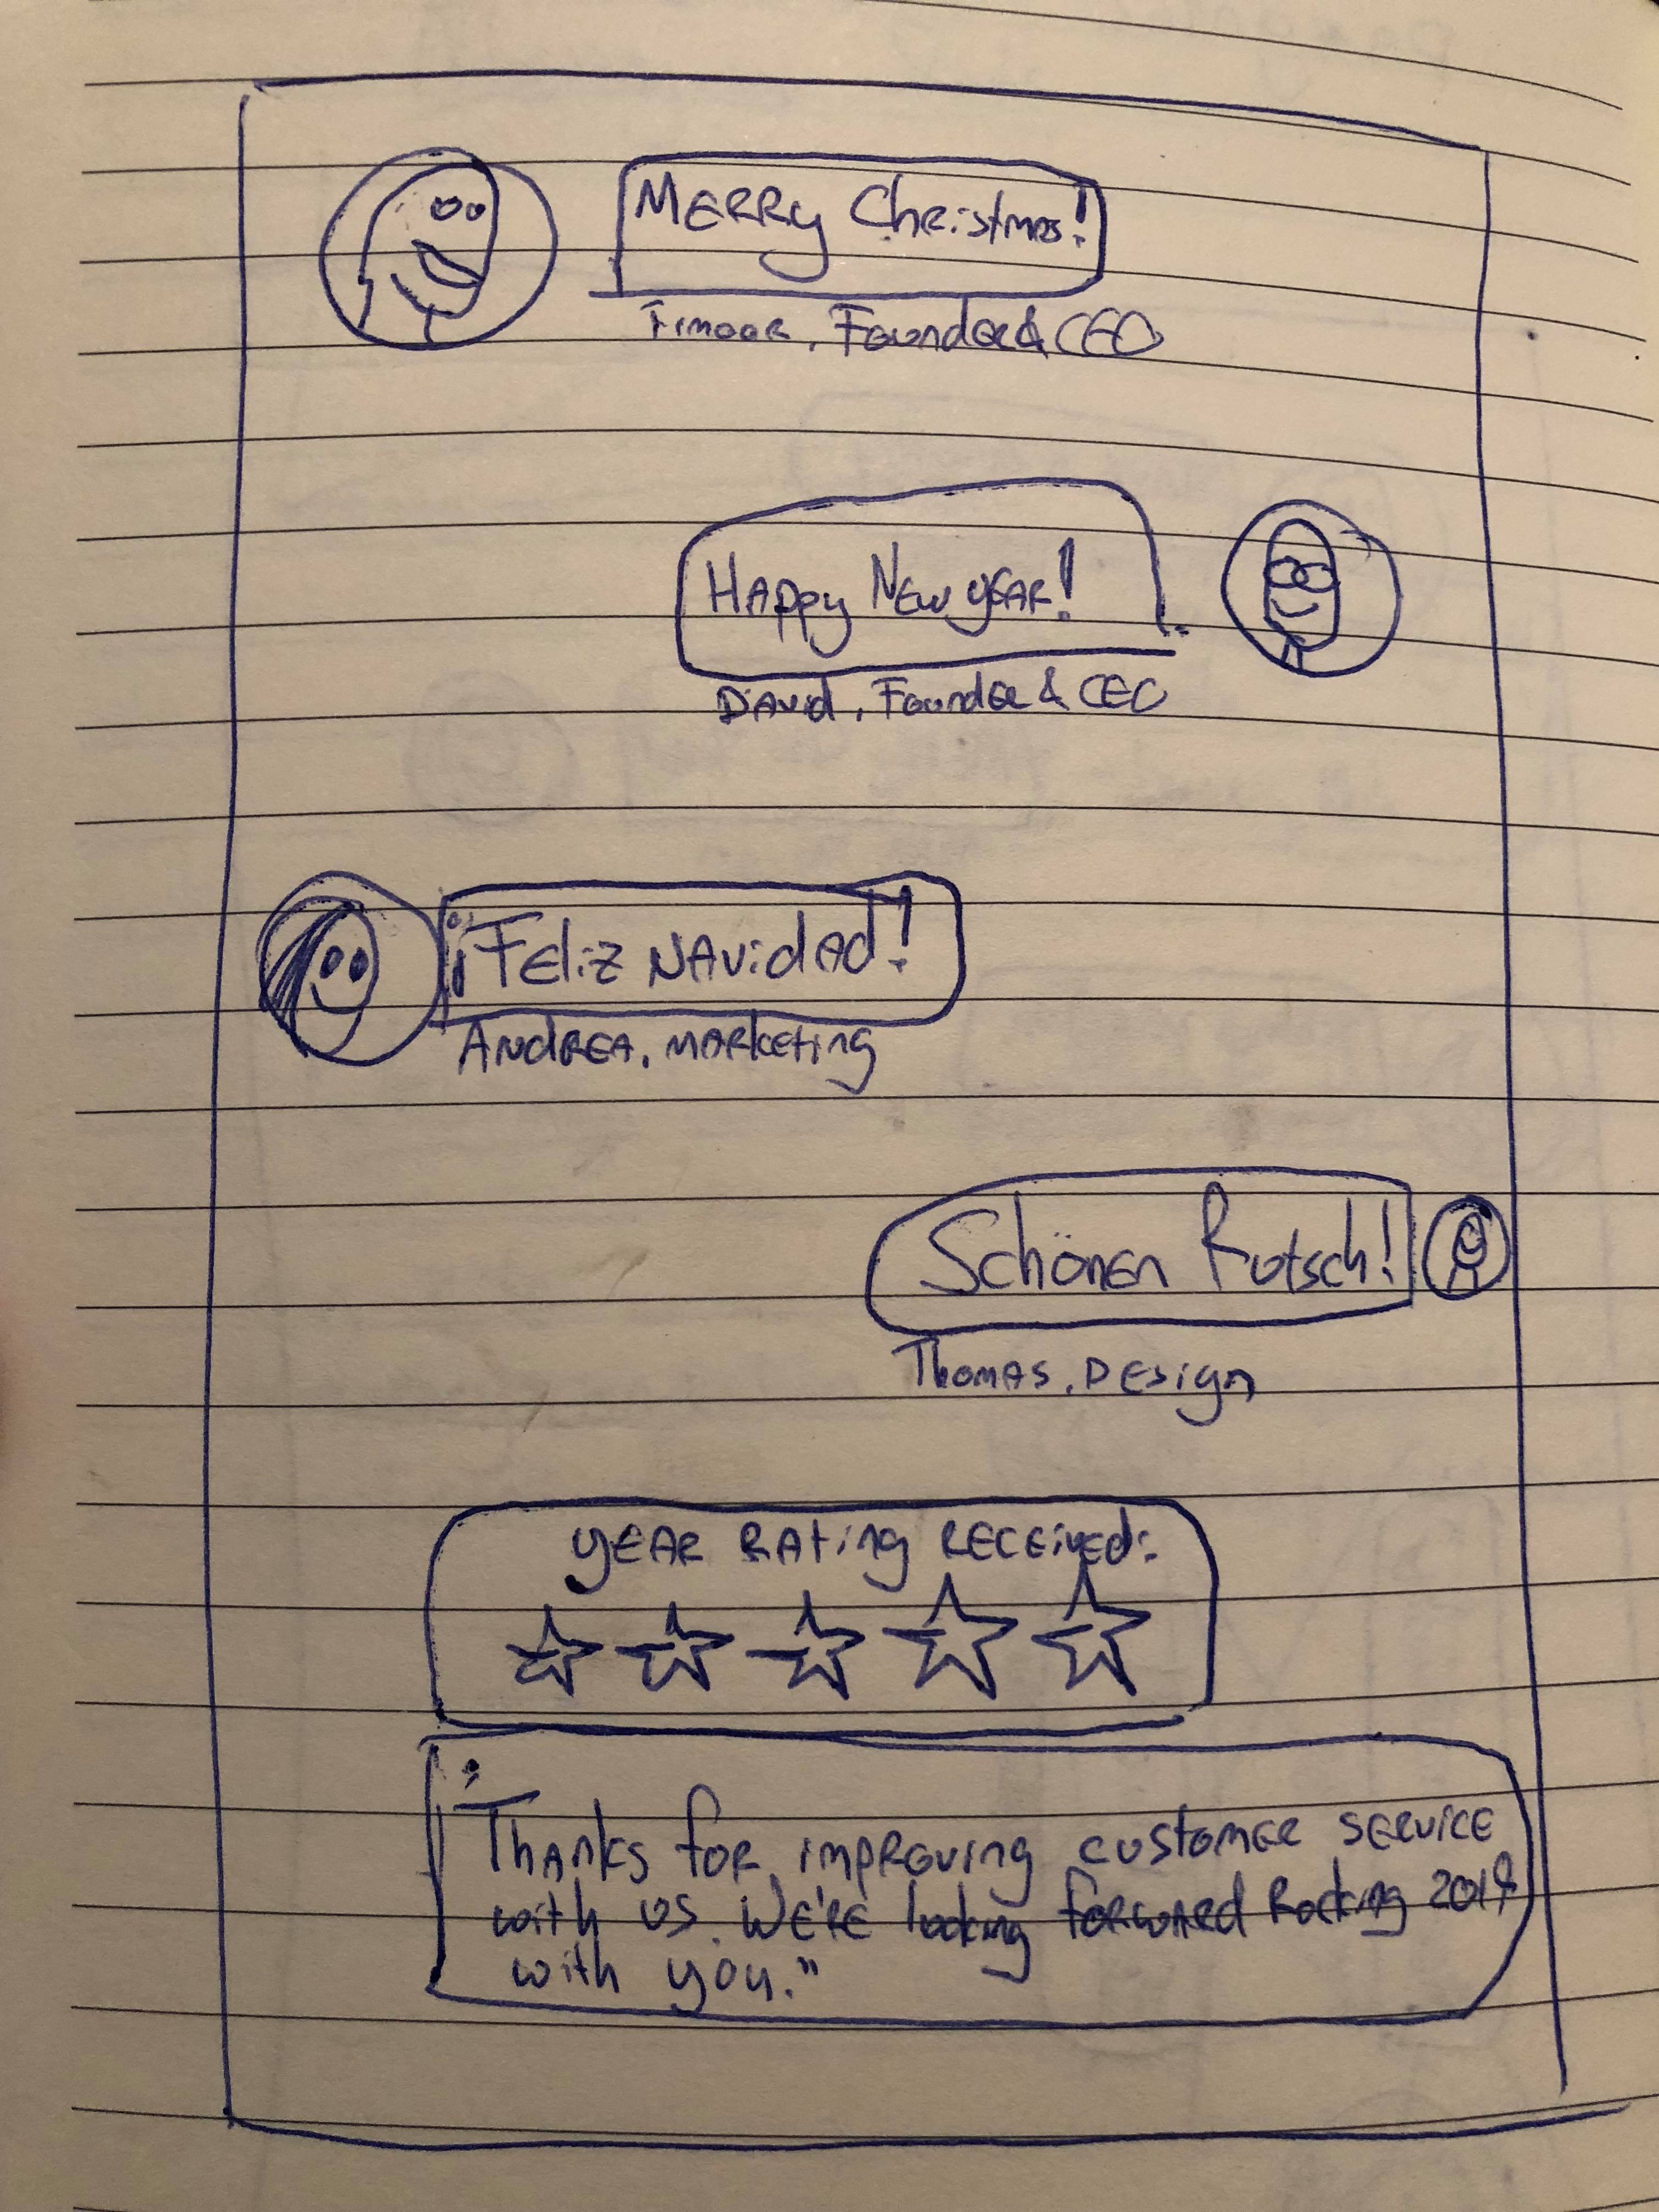 Merry Christmas!
Timoor, Founder & CEO
Happy New year!
David, Founder & CEO
¡Feliz Navidad!
Andrea, marketing
Schönen Rutsch!
Thomas, Design
year rating received:
"Thanks for improving customer service
with us. We're looking forward Rocking 2019
with you."